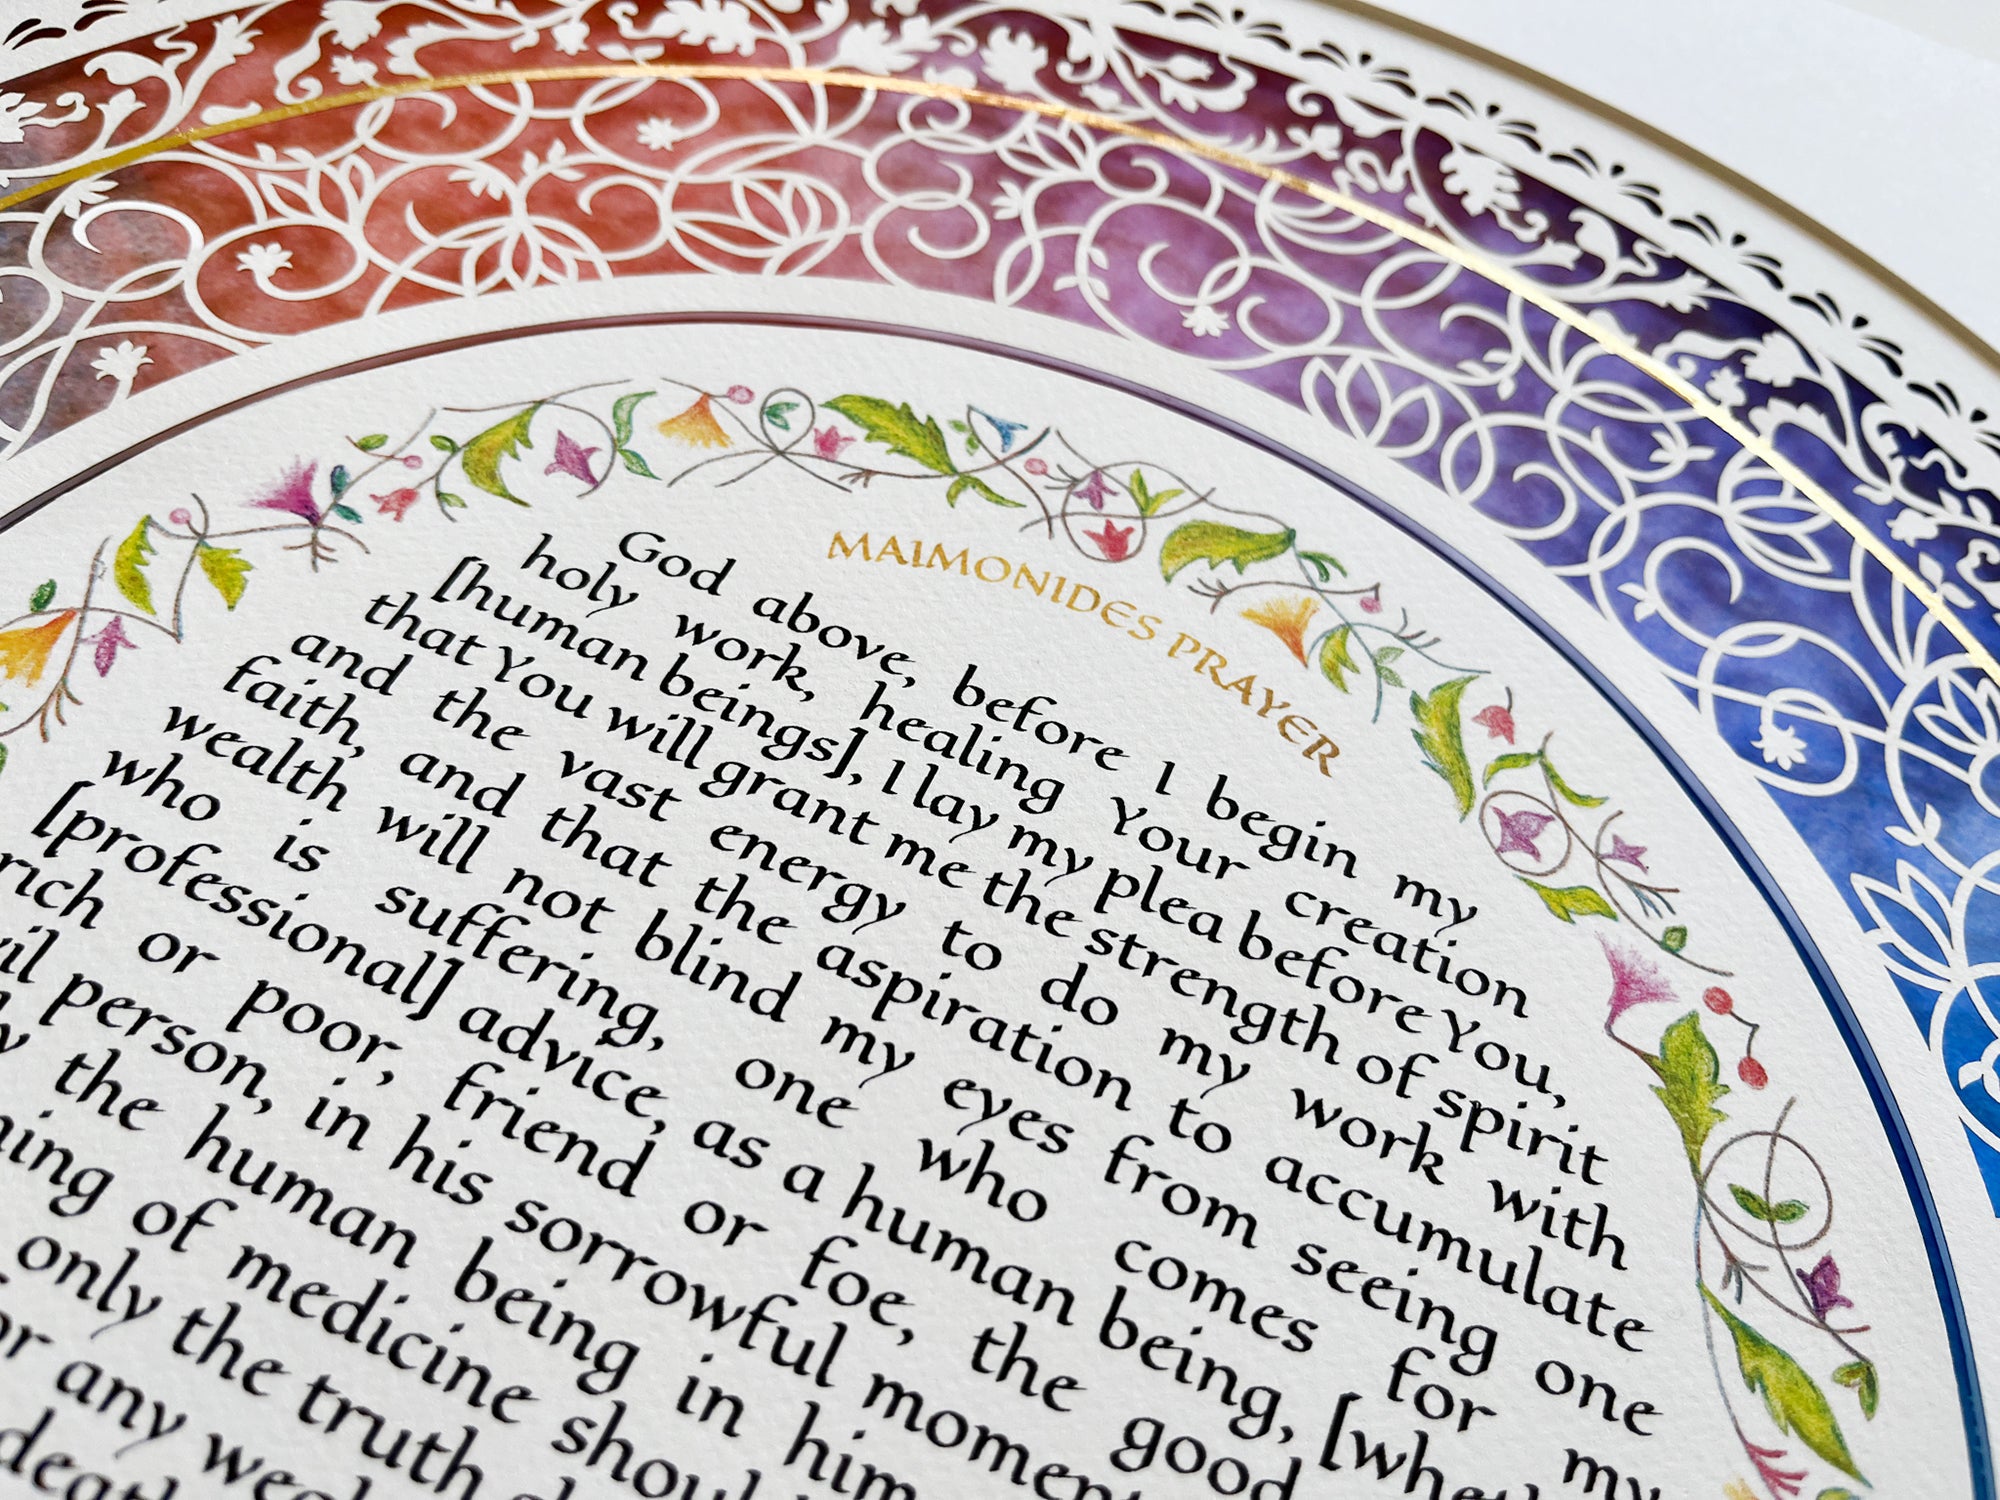 MAIMONIDES PRAYER
God above, before I begin my
holy work, healing Your creation
[human beings], I lay my plea before You,
that You will grant me the strength of spirit
and the vast energy to do my work with
faith, and that the aspiration to accumulate
wealth will not blind my eyes from seeing one
who is suffering, one who comes for my
[professional] advice, as a human being,
rich or poor, friend or foe, the good
person, in his sorrowful
the human being in him
of medicine
only the truth
any